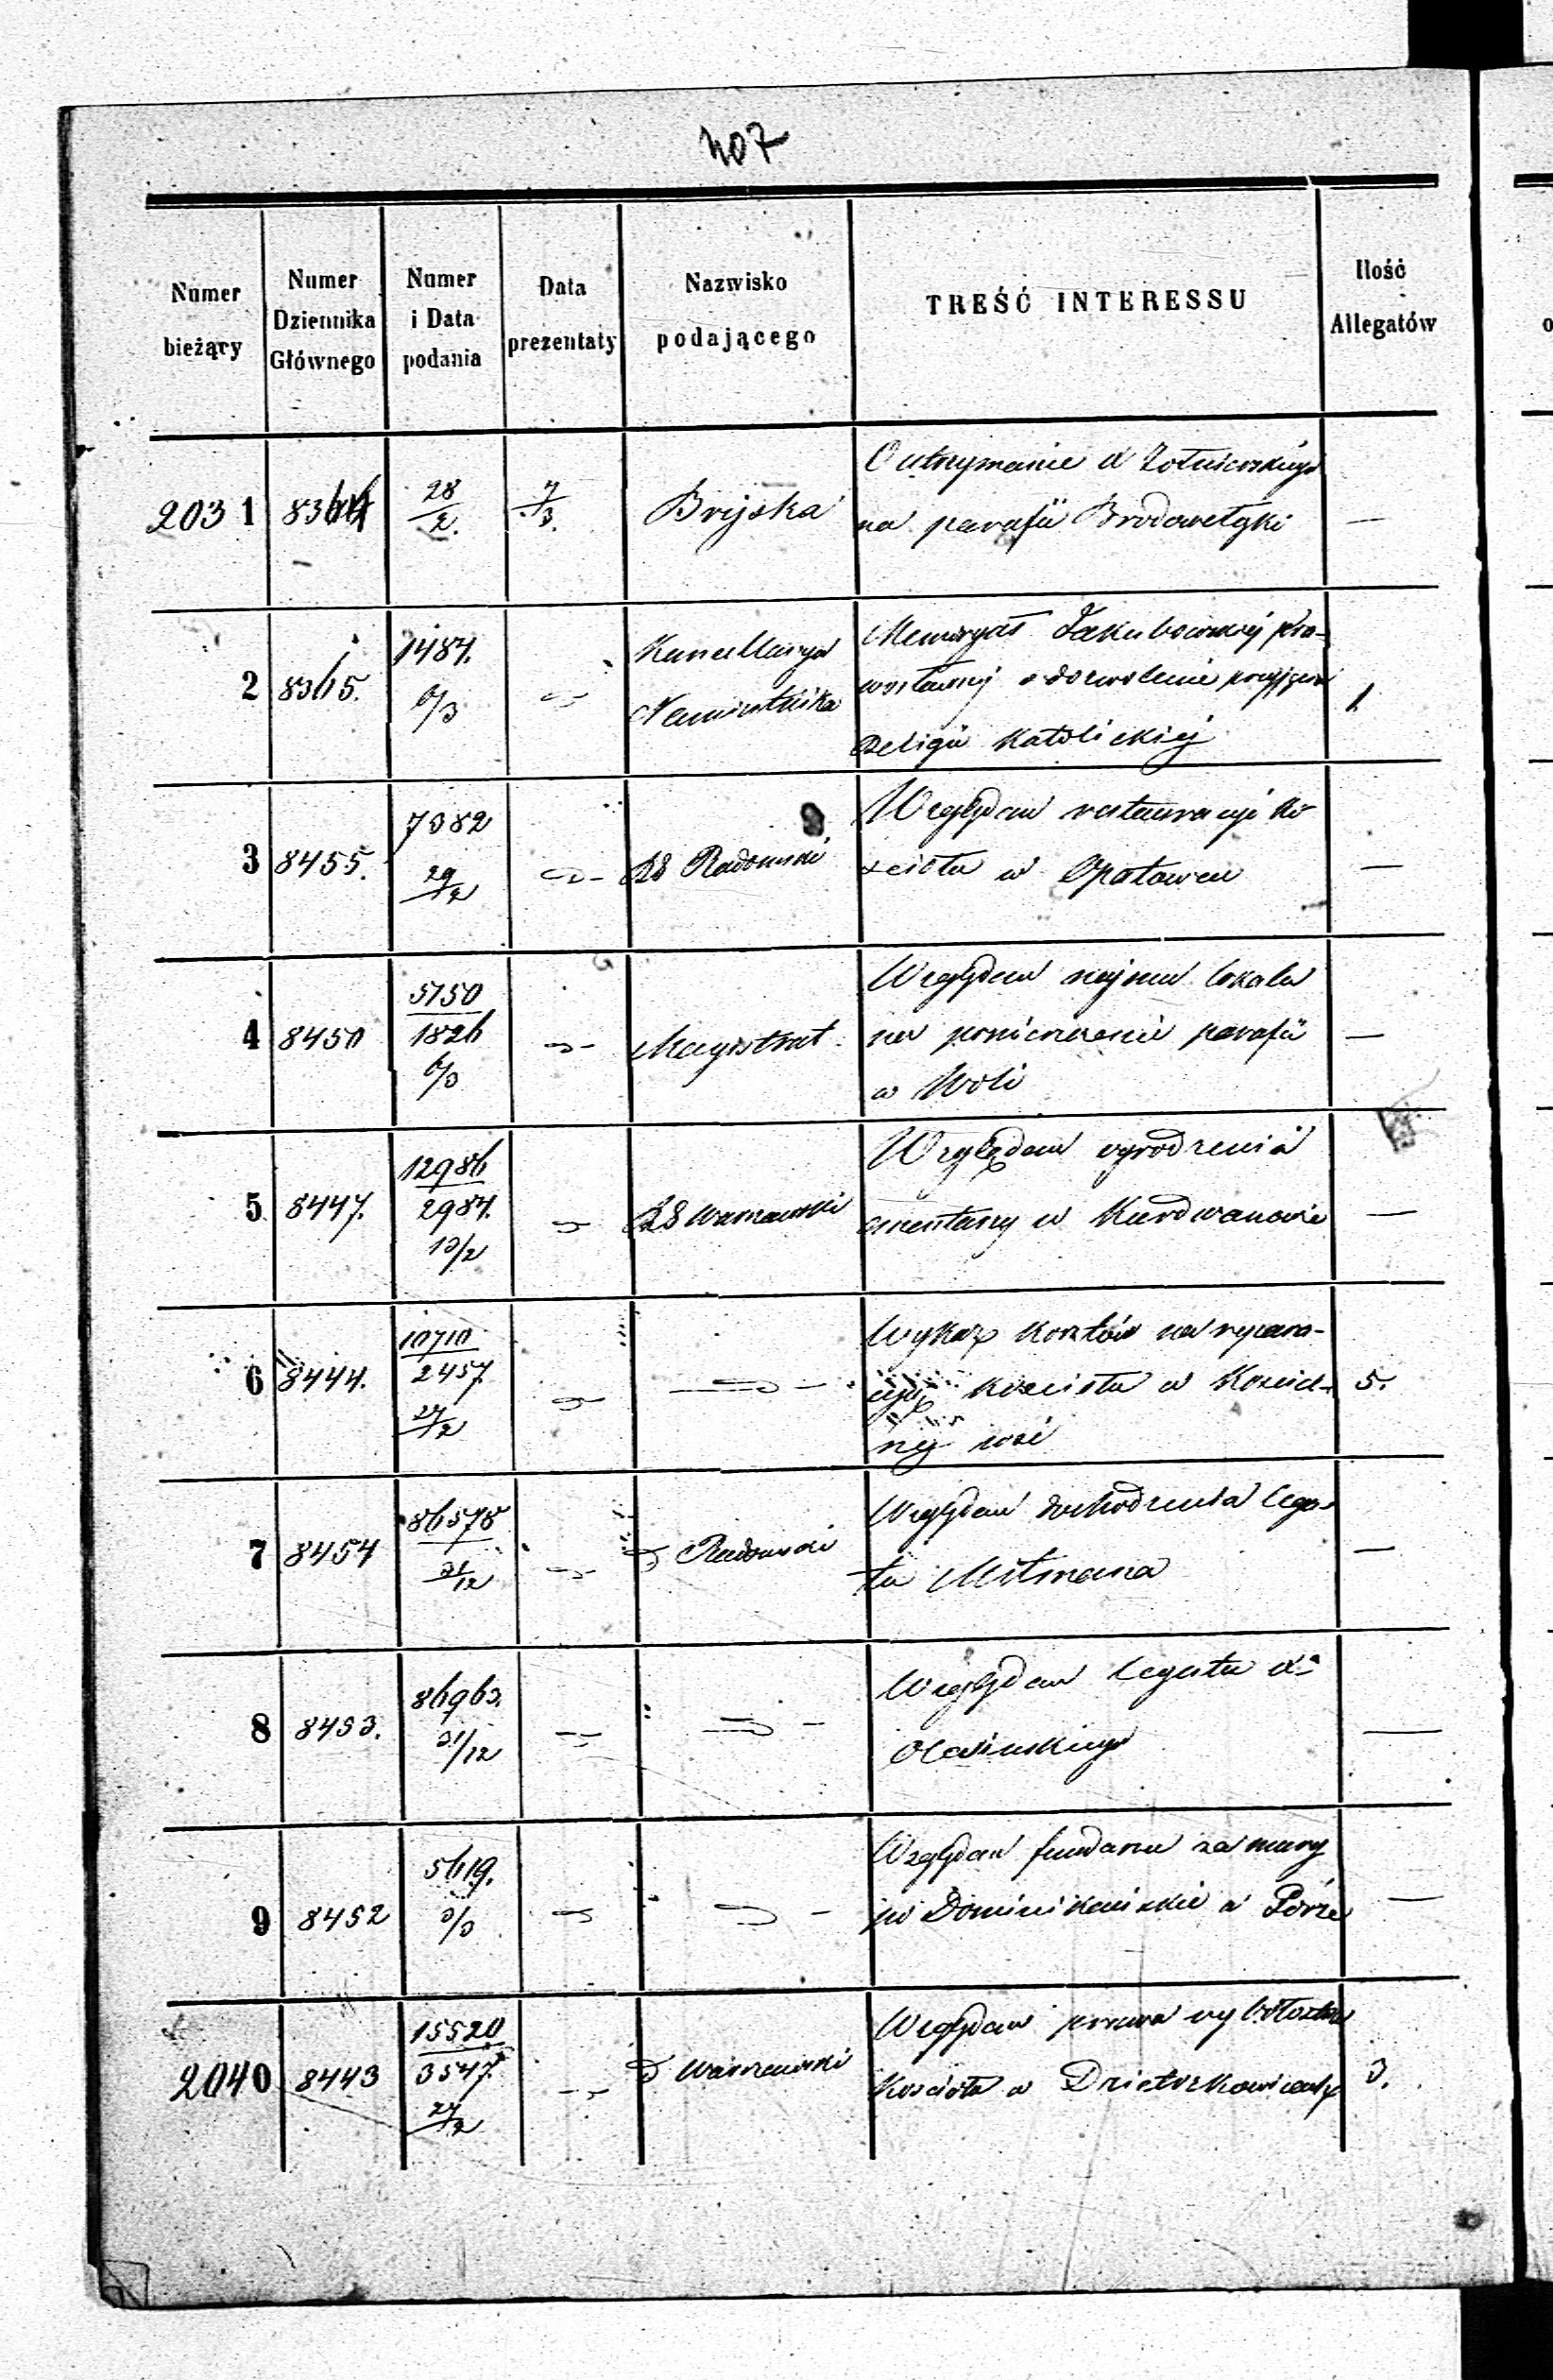 407
Numer bieżący
Numer Dziennika Głównego
Numer i Data podania
Data prezentaty
Nazwisko podającego
TREŚĆ INTERESSU
Ilość Allegatów
2031 8364 28/2. 7/3. Bryjska O utrzymanie
na parafii —
2 8365. 1487. 6/3 Kancellarya Namiestnika Memoryał Jakubowskiej pra-
wosławnej o dozwolenie przyjęcia 1.
Religii Katolickiej
3 8455. 7382 29/2 RG Radomski Względem restauracyi Ko-
ścioła w Opatowcu —
4 8450 5750 1826 6/3 Magistrat Względem najmu lokalu
na pomieszczenie parafii —
w Woli
5 8447. 12986 2987. 13/2 RG Warszawski Względem ogrodzenia
cmentarzy w Kurdwanowie —
6 8444. 10710 2457 27/2 Wykaz kosztów na repara-
cyję kościoła w Kościel- 5.
nej wsi
7 8454 86578 31/12 Radomski Względem dochodzenia lega-
tu Mitmana —
8 8453. 86963. 31/12 Względem legatu
—
9 8452 5619. 3/3 Względem fundaru za mury
po Dominikańskie —
2040 8443 15520 3547. 27/2 Warszawski Względem prawa
Kościoła w Dzietrzkowicach 3.